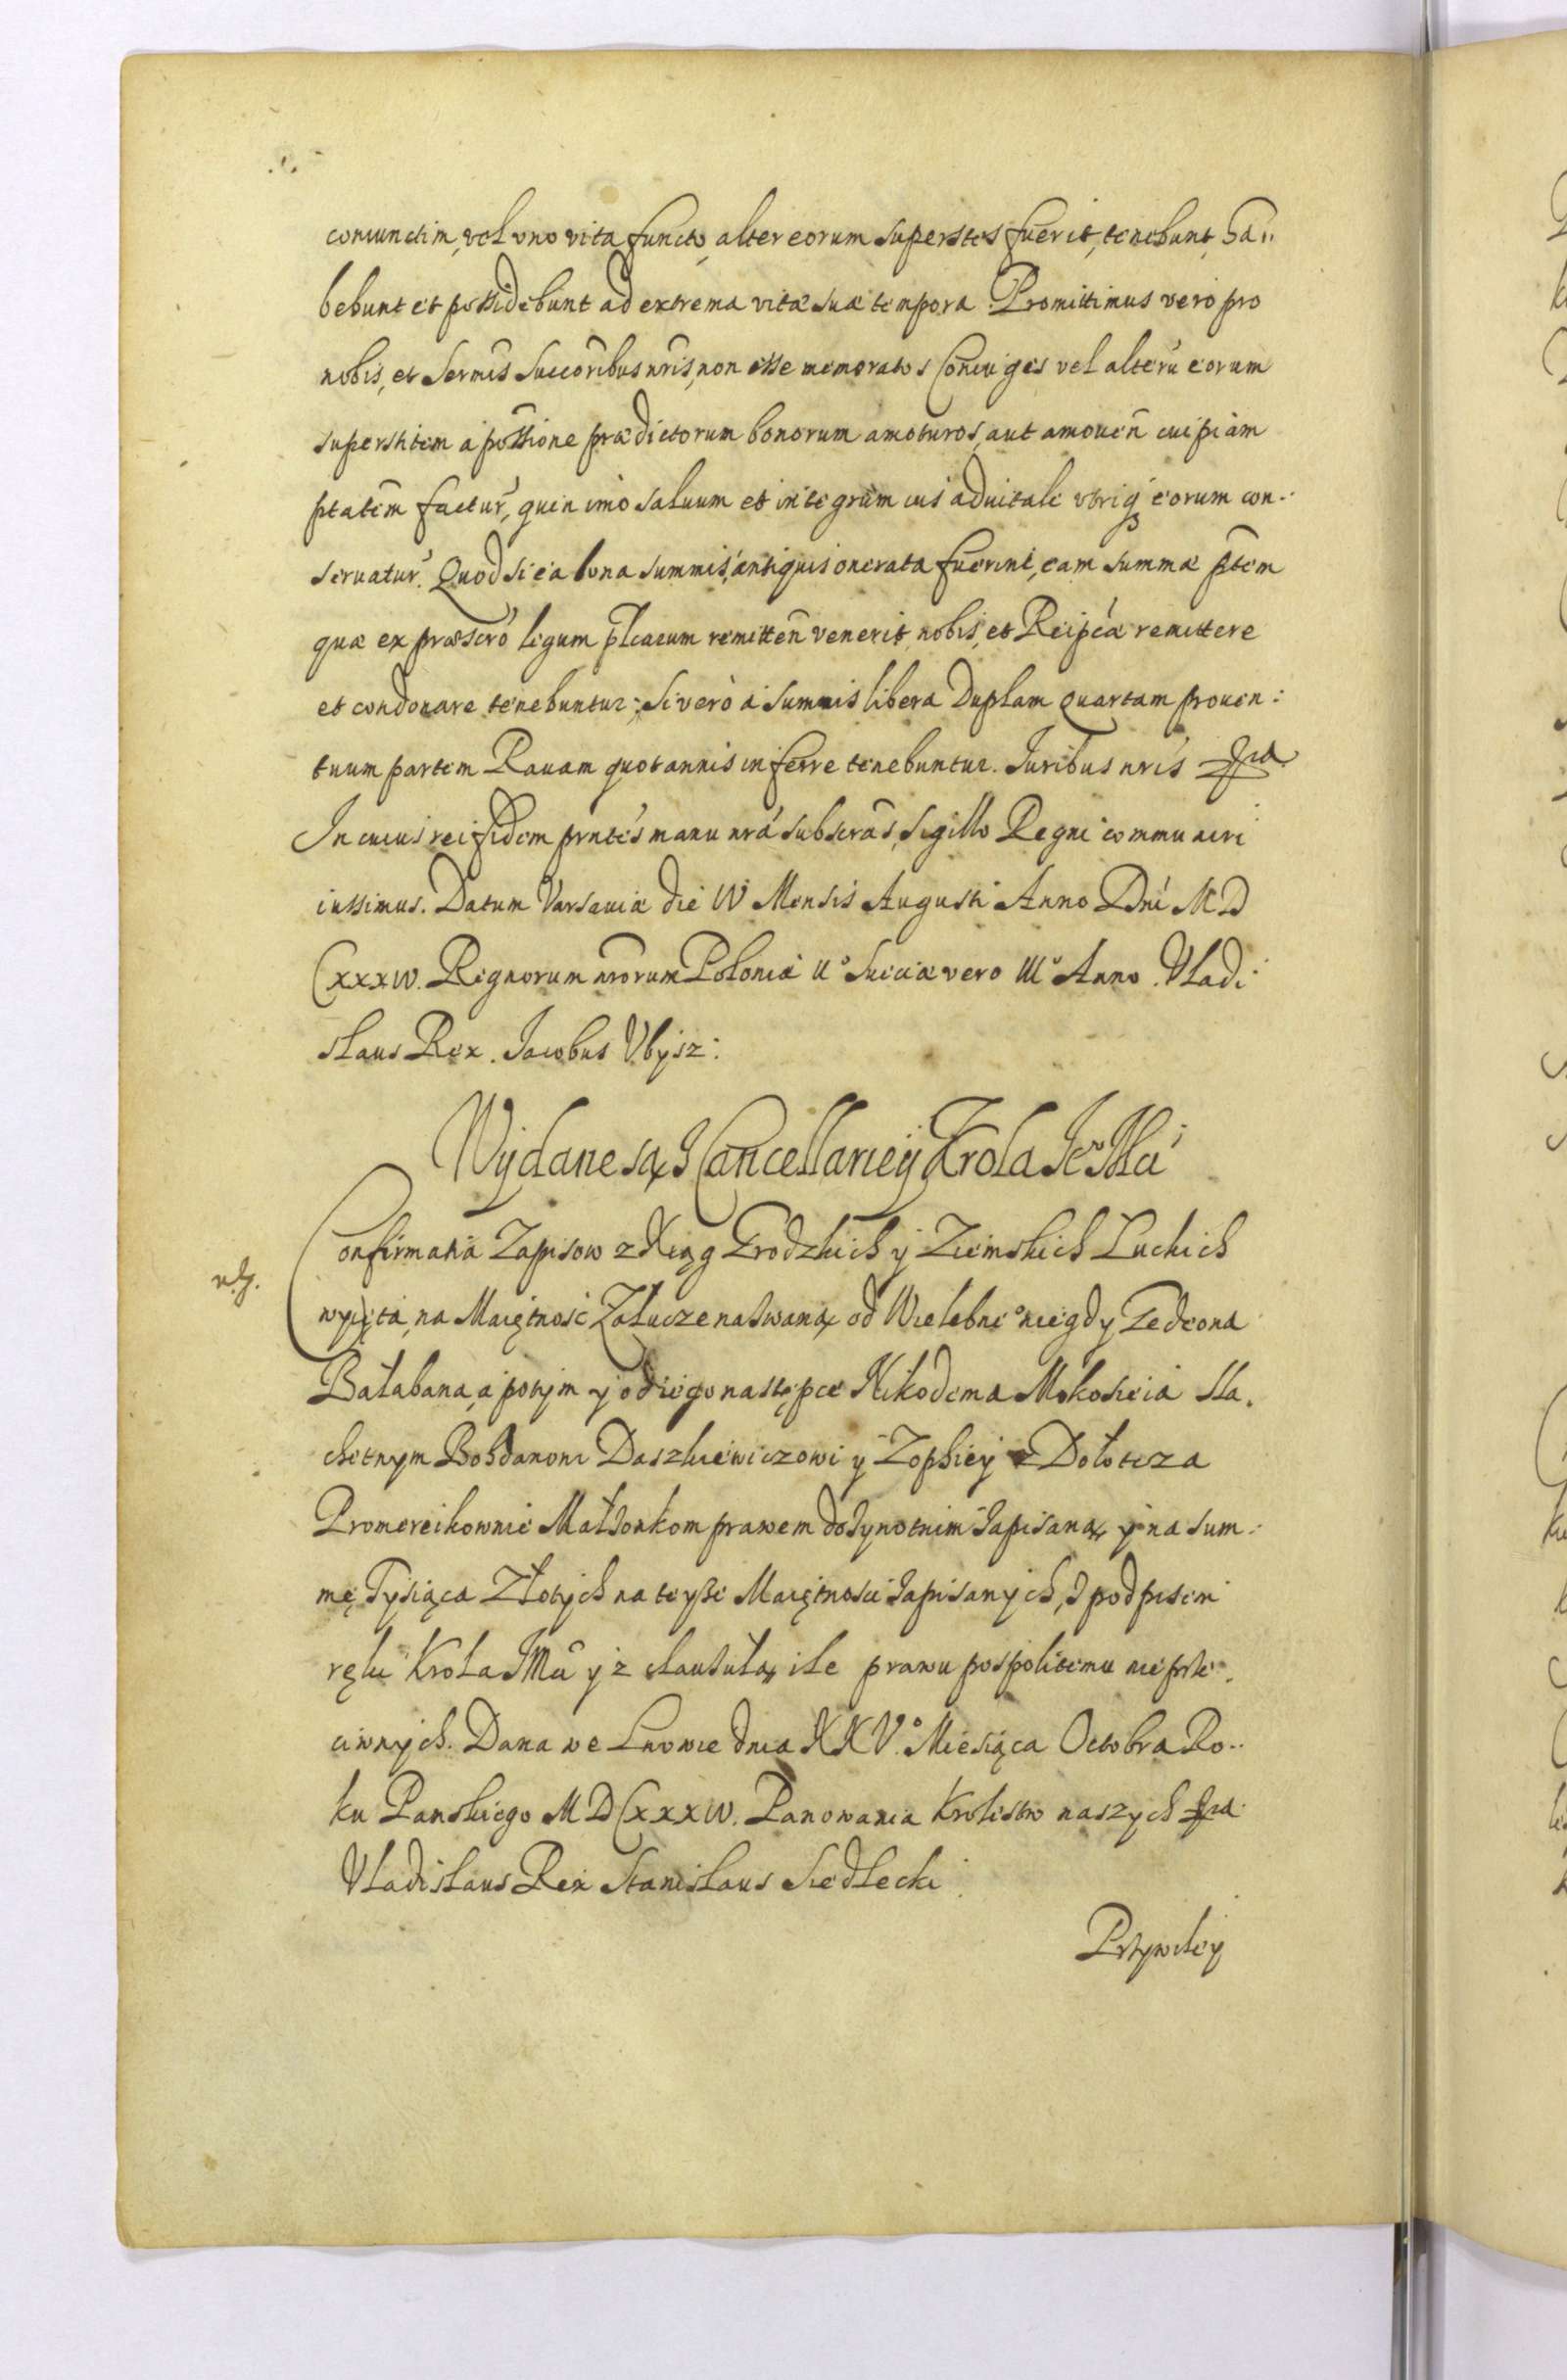 coniunctim, vel vno vita functo, alter eorum superstes fuerit, tenebunt, ha„
bebunt et possidebunt ad extrema vitæ suæ tempora. Promittimus vero pro
nobis, et Sermis Succoribus nris, non esse memoratos Coniuges vel alteru eorum
superstitem a possione prædictorum bonorum amoturos, aut amouen cuipiam
ptatem factur, quin imo saluum et integrum ius aduitale vtriq eorum con-
seruatur. Quod si ea bona summis antiquis onerata fuerint, eam summæ ptem
quæ ex præscro legum plicarum remitten venerit, nobis, et Reipcæ remittere
et condonare tenebuntur; Si vero a summis libera Duplam quartam prouen:
tuum partem Rauam quotannis inferre tenebuntur. Juribus nris
In cuius rei fidem prntes manu nra subscras, Sigillo Regni communiri
iussimus. Datum Varsauiæ die IV Mensis Augusti Anno Dni MD
CXXXIV. Regnorum nrorum Poloniæ IIº Sueciæ vero IIIº Anno. Vladi:
slaus Rex. Jacobus Vbysz:
Wydane są z Cancellariey Krola Jeº Mci
v. g.
Confirmatia Zapisow z Xiąg Grodzkich y Ziemskich Luckich
wyięta, na Maiętnosc Załucze naswaną od Wielebneº niegdy Gedeona
Bałabana, a potym y od iego nastepce Nikodema Mokosieia sla.
chetnym Bohdanowi Daszkiewiczowi y Zophiey z Dołotcza
Promereikownie Małżonkom prawem dożynotnim zapisaną y na sum:
mę Tysiąca Złotych na teyże Maiętnosci zapisanych, z podpisem
ręku Krola JMci y z clausulą ile prawu pospolitemu nie prze.
ciwnych. Dana we Lwowie dnia XXVº Miesiąca Octobra Ro..
ku Panskiego MDCXXXIV. Panowania Krolestw naszych
Vladislaus Rex Stanislaus Siedlecki
Przywiley